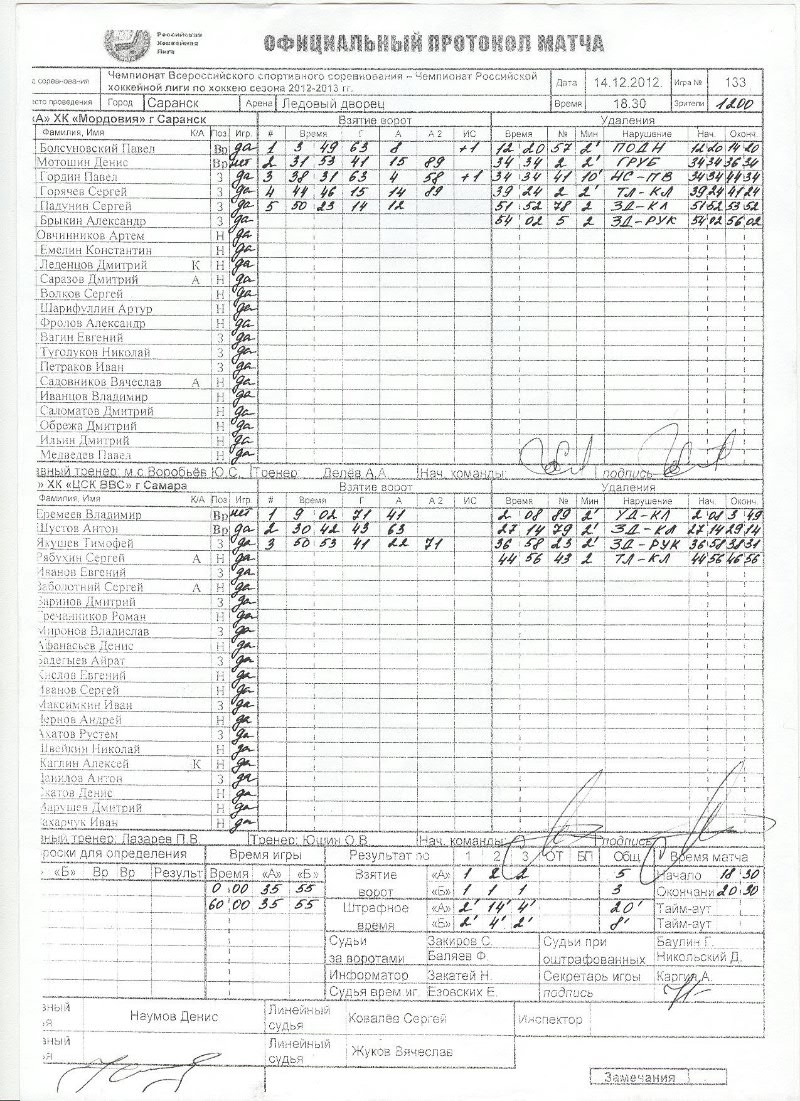 Российская
Хоккейная
Лига
ОФИЦИАЛЬНЫЙ ПРОТОКОЛ МАТЧА
соревнования Чемпионат Всероссийского спортивного соревнования – Чемпионат Российской хоккейной лиги по хоккею сезона 2012-2013 гг. Дата 14.12.2012. Игра № 133
проведения Город Саранск Арена Ледовый дворец Время 18.30 Зрители 1200
А» ХК «Мордовия» г Саранск Взятие ворот Удаления
Фамилия, Имя К/А Поз Игр. # Время Г А А 2 ИС Время № Мин Нарушение Нач. Оконч.
Болсуновский Павел Вр да 1 3 49 63 8 +1 12 20 57 2' ПОДН 12 20 14 20
Мотошин Денис Вр нет 2 31 53 41 15 89 34 34 2 2' ГРУБ 34 34 36 34
Гордин Павел З да 3 38 31 63 4 58 +1 34 34 41 10' НС-ПВ 34 34 44 34
Горячев Сергей З да 4 44 46 15 14 89 39 24 2 2' ТЛ-КЛ 39 24 41 24
Падунин Сергей З да 5 50 23 14 12 51 52 78 2 ЗД-КЛ 51 52 53 52
Брыкин Александр З да 54 02 5 2 ЗД-РУК 54 02 56 02
Овчинников Артем Н да
Емелин Константин Н да
Леденцов Дмитрий К Н да
Саразов Дмитрий А Н да
Волков Сергей Н да
Шарифуллин Артур Н да
Фролов Александр Н да
Вагин Евгений З да
Туголуков Николай З да
Петраков Иван З да
Садовников Вячеслав А Н да
Иванцов Владимир Н да
Саломатов Дмитрий Н да
Обрежа Дмитрий Н да
Ильин Дмитрий Н да
Медведев Павел Н да
авный тренер: м.с.Воробьёв Ю.С. Тренер: Делёв А.А. Нач. команды: подпись
» ХК «ЦСК ВВС» г Самара Взятие ворот Удаления
Фамилия, Имя К/А Поз Игр. # Время Г А А 2 ИС Время № Мин Нарушение Нач. Оконч.
Еремеев Владимир Вр нет 1 9 02 71 41 2 08 89 2' УД-КЛ 2 08 3 49
Шустов Антон Вр да 2 30 42 43 63 27 14 79 2' ЗД-КЛ 27 14 29 14
Якушев Тимофей З да 3 50 53 41 22 71 36 58 23 2' ЗД-РУК 36 58 38 31
Рябухин Сергей А Н да 44 56 43 2 ТЛ-КЛ 44 56 46 56
Иванов Евгений Н да
Заболотний Сергей А Н да
Баринов Дмитрий З да
Гречанников Роман Н да
Миронов Владислав З да
Афанасьев Денис Н да
Задегыев Айрат З да
Кислов Евгений Н да
Иванов Сергей Н да
Максимкин Иван З да
Чернов Андрей Н да
Ахатов Рустем З да
Швейкин Николай Н да
Каглин Алексей К Н да
Данилов Антон З да
Скатов Денис Н да
Марушев Дмитрий Н да
Захарчук Иван Н да
вный тренер: Лазарев П.В. Тренер: Юшин О.В. Нач. команды: подпись
роски для определения Время игры Результат по 1 2 3 ОТ БП Общ Время матча
«Б» Вр Вр Результ Время «А» «Б» Взятие «А» 1 2 2 5 Начало 18 30
0 00 35 55 ворот «Б» 1 1 1 3 Окончани 20 30
60 00 35 55 Штрафное «А» 2' 14' 4' 20' Тайм-аут
время «Б» 2' 4' 2' 8' Тайм-аут
Судьи Закиров С. Судьи при Баулин Г.
за воротами Баляев Ф. оштрафованных Никольский Д.
Информатор Закатей Н. Секретарь игры Каргин А.
Судья врем иг. Езовских Е. подпись
вный Наумов Денис Линейный судья Ковалёв Сергей Инспектор
вный Линейный судья Жуков Вячеслав
Замечания